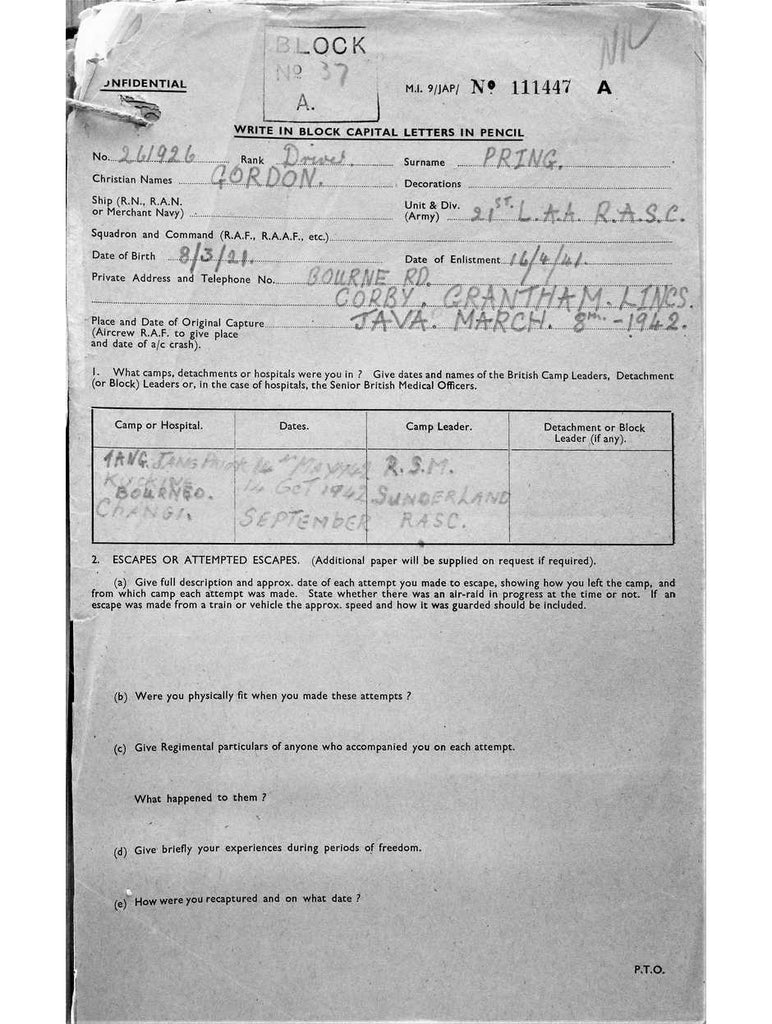 BLOCK
Nº 37
A.
NIL
ONFIDENTIAL
M.I. 9/JAP/ Nº 111447 A
WRITE IN BLOCK CAPITAL LETTERS IN PENCIL
No. 261926 Rank Driver. Surname PRING.
Christian Names GORDON. Decorations
Ship (R.N., R.A.N. or Merchant Navy)
Unit & Div. (Army) 21ST. L.A.A. R.A.S.C.
Squadron and Command (R.A.F., R.A.A.F., etc.)
Date of Birth 8/3/21. Date of Enlistment 16/4/41.
Private Address and Telephone No. BOURNE RD.
CORBY. GRANTHAM. LINCS.
Place and Date of Original Capture JAVA. MARCH. 8TH. -1942.
(Aircrew R.A.F. to give place
and date of a/c crash).
1. What camps, detachments or hospitals were you in ? Give dates and names of the British Camp Leaders, Detachment
(or Block) Leaders or, in the case of hospitals, the Senior British Medical Officers.
Camp or Hospital. Dates. Camp Leader. Detachment or Block
Leader (if any).
TANG. JANG 14TH MAY 1942 R.S.M.
BOURNEO. 14 OCT 1942 SUNDERLAND
CHANGI. SEPTEMBER RASC.
2. ESCAPES OR ATTEMPTED ESCAPES. (Additional paper will be supplied on request if required).
(a) Give full description and approx. date of each attempt you made to escape, showing how you left the camp, and
from which camp each attempt was made. State whether there was an air-raid in progress at the time or not. If an
escape was made from a train or vehicle the approx. speed and how it was guarded should be included.
(b) Were you physically fit when you made these attempts ?
(c) Give Regimental particulars of anyone who accompanied you on each attempt.
What happened to them ?
(d) Give briefly your experiences during periods of freedom.
(e) How were you recaptured and on what date ?
P.T.O.